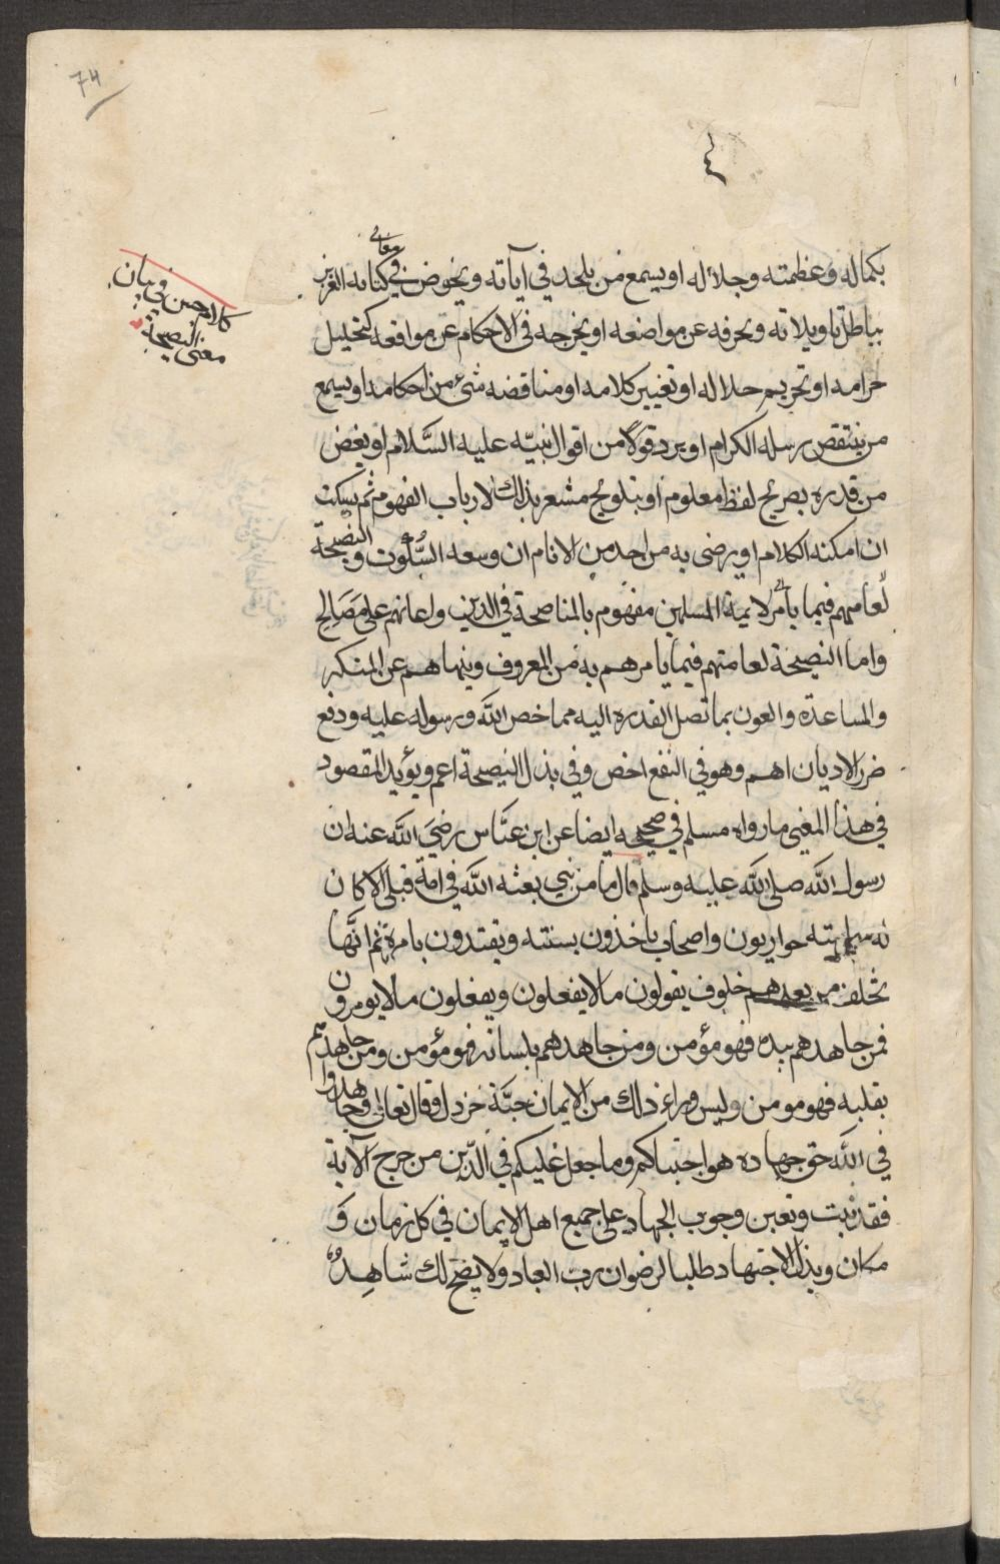 74
بكماله وعظمته وجلاله او يسمع من يلحد في آياته ويخوض في معاني كتابه العزيز
بباطل تاويلاته ويحرفه عن مواضعه او يخرجه في الاحكام عن مواقعه كتحليل
حرامه او تحريم حلاله او تغيير كلامه او مناقضه شئ من احكامه او يسمع
من ينتقص رسله الكرام او يرد قولا من اقوال نبيّه عليه السَّلام او يغض
من قدره بصريح لفظ معلوم او بتلويح مشعر بذلك لارباب الفهوم ثم يسكت
ان امكنه الكلام او يرضى به من احد من الانام ان وسعه السُّكوت والنصيحة
لعامهم فيما يأمر لايمة المسلمين مفهوم بالمناصحة في الدين واعانهم على مَصَالح
واما النصيحة لعامتهم فيما يامرهم به من المعروف وينهاهم عن المنكر
والمساعدة والعون بما تصل القدره اليه مما خص الله ورسوله عليه ودفع
ضرر الاديان اهم وهو في النفع اخص وفي بذل النصيحة اعم ويؤيد المقصود
في هذا المعنى ما رواه مسلم في صحيحه ايضا عن ابن عبَّاس رضيَ الله عنه ان
رسول الله صلى الله عليه وسلم قال ما من نبي بعثه الله في امة قبلى الا كان
له من امته حواريون واصحاب ياخذون بسنته ويقتدون بامره ثم انَّها
تخلف من بعدهم خلوف يقولون ما لا يفعلون ويفعلون ما لا يومرون
فمن جاهدهم بيده فهو مؤمن ومن جاهدهم بلسانه فهو مؤمن ومن جاهدهم
بقلبه فهو مومن وليس وراء ذلك من الايمان حبَّة خردل وقال تعالى وجاهدوا
في الله حق جهاده هو اجتباكم وما جعل عليكم في الدِّين من حرج الآية
فقد ثبت وتعين وجوب الجهاد على جميع اهل الايمان في كل زمان وَ
مكان وبذل الاجتهاد طلبا لرضوان رب العباد ولا يضح لك شاهِدُه
كلام حسن في بيان
معنى النصيحة